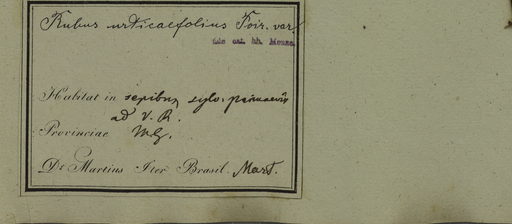 Rubus urticaefolius Poir. var.
Habitat in sepibus sylv. primaevis
ad V. R.
Provinciae M.G.
Dr. Martius Iter Brasil. Mart.